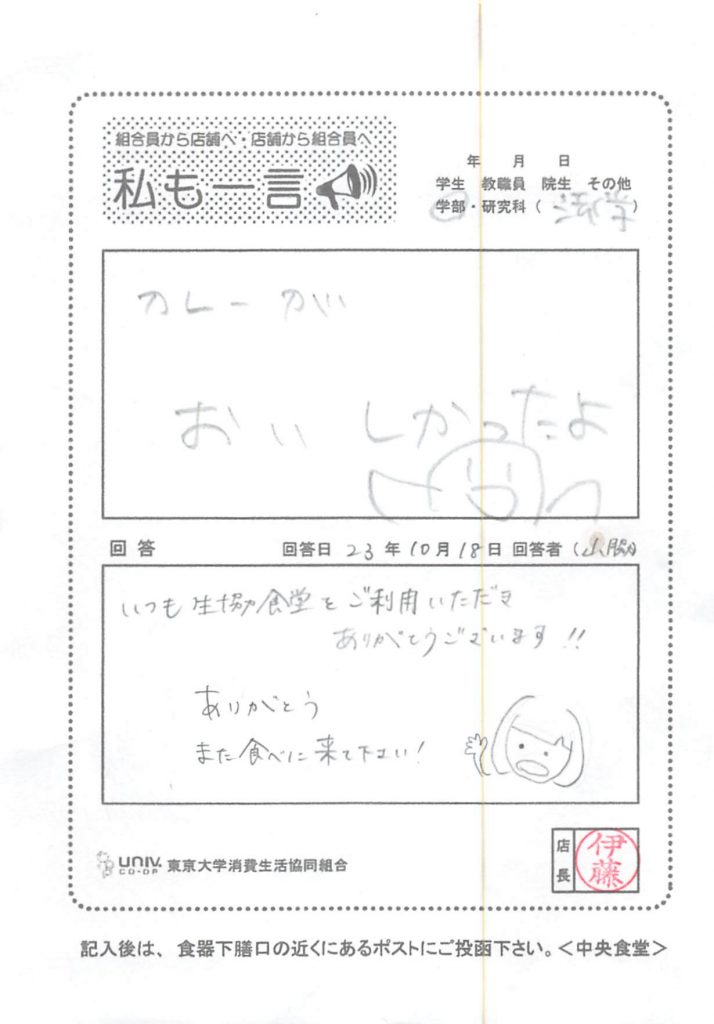 組合員から店舗へ・店舗から組合員へ
私も一言
年 月 日
学生 教職員 院生 その他
学部・研究科( 法学 )
カレーが
おいしかったよ
回答 回答日 23年10月18日 回答者(山脇)
いつも生協食堂をご利用いただき
ありがとうございます!!
ありがとう
また食べに来て下さい!
店長 伊藤
UNIV. CO-OP 東京大学消費生活協同組合
記入後は、食器下膳口の近くにあるポストにご投函下さい。<中央食堂>